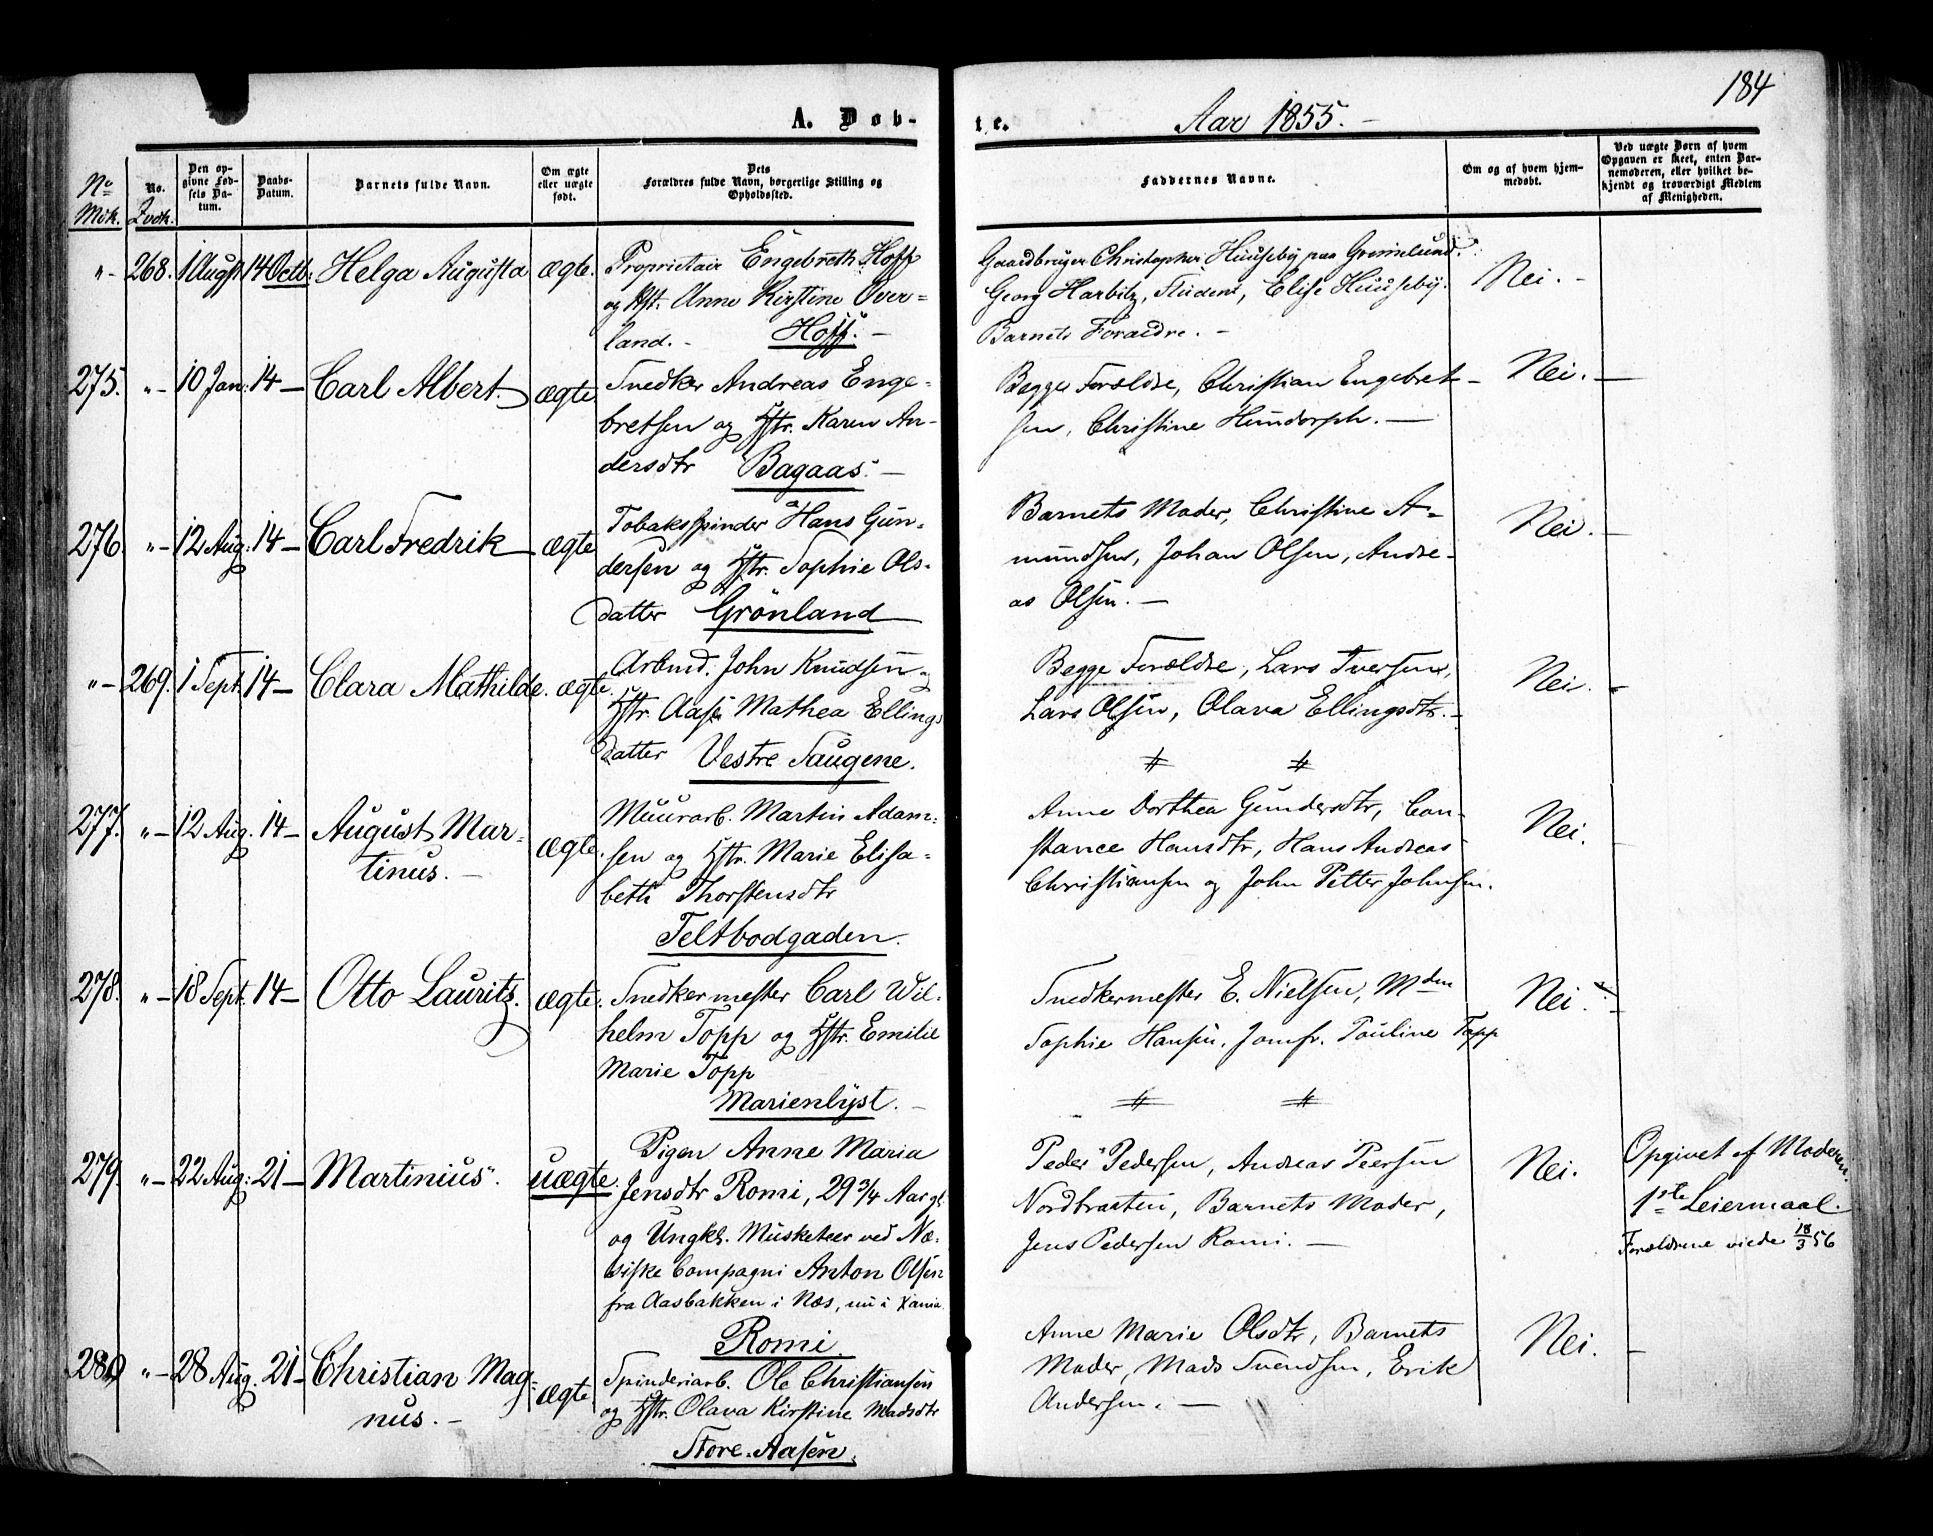 184
A. Døb-
te.
Aar 1855. -
No Mck.
No. Qvck.
Den opgivne Fødsels Datum.
Daabs-Datum.
Barnets fulde Navn.
Om ægte eller uægte født.
Dets Forældres fulde Navn, borgerlige Stilling og Opholdssted.
Faddernes Navne.
Om og af hvem hjemmedøbt.
Ved uægte Børn af hvem Opgaven er skeet, enten Barnemoderen, eller hvilket bekjendt og troværdigt Medlem af Menigheden.
"- 268. 1 Augst. 14 Octb. Helga Augusta ægte.
Proprietair Engebreth Hoff
og Hst. Anne Kirstine Over=
land. - Hoff. -
Gaardbruger Christopher Huuseby paa Grimelund.
Georg Harbitz, Student, Elise Huuseby.
Barnets Forældre. -
Nei. -
275. "- 10 Jan: 14 - Carl Albert. ægte
Snedker Andreas Enge=
bretsen og Hstr. Karen An-
dersdtr Bagaas. -
Begge Forældre, Christian Engebret-
sen, Christine Hundorph. -
Nei. -
276. "- 12 Aug: 14 - Carl Fredrik ægte
Tobaksspinder Hans Gun-
dersen og Hstr. Sophie Ols-
datter Grönland
Barnets Moder, Christine A-
mundsen, Johan Olsen, Andre-
as Olsen. -
Nei. -
"- 269. 1 Sept. 14 - Clara Mathilde. ægte.
Arbmd. John Knudsen og
Hstr. Aase Mathea Ellings
datter Vestre Saugene.
Begge Forældre, Lars Iversen,
Lars Olsen, Olava Ellingsdtr. -
Nei. -
277. "- 12 Aug. 14 - August Mar-
tinus. - ægte.
Muurarb. Martin Adam=
sen og Hstr. Marie Elisa-
beth Thorstensdtr
Teltbodgaden.
Anne Dorthea Gundersdtr, Con-
stance Hansdtr, Hans Andreas
Christiansen og John Petter Johnsen.
Nei. -
278. "- 18 Sept. 14 - Otto Lauritz. ægte.
Snedkermester Carl Wil-
helm Topp og Hstr. Emilie
Marie Topp
Marienlyst. -
Snedkermester E. Nielsen, Mdm
Sophie Hansen, Jomfr. Pauline Topp
Nei. -
279. "- 22 Aug: 21 - Martinius. uægte.
Pigen Anne Maria
Jensdtr Romi, 29 3/4 Aar gl.
og Ungkl. Musketeer ved Næ-
siske Compagni Anton Olsen
fra Aasbakken i Næs, nu i Xania
Romi.
Peder Pedersen, Andreas Peersen
Nordbraaten, Barnets Moder,
Jens Pedersen Romi. -
Nei.
Opgivet af Moderen.
1ste Leiermaal.
Forældrene viede 18/3 56
280 "- 28 Aug. 21 - Christian Mag-
nus. - ægte
Spinderiarb. Ole Christiansen
og Hstr. Olava Kirstine Madsdtr
Store-Aasen.
Anne Marie Olsdtr, Barnets
Moder, Mads Svendsen, Erik
Andersen. -
Nei. -